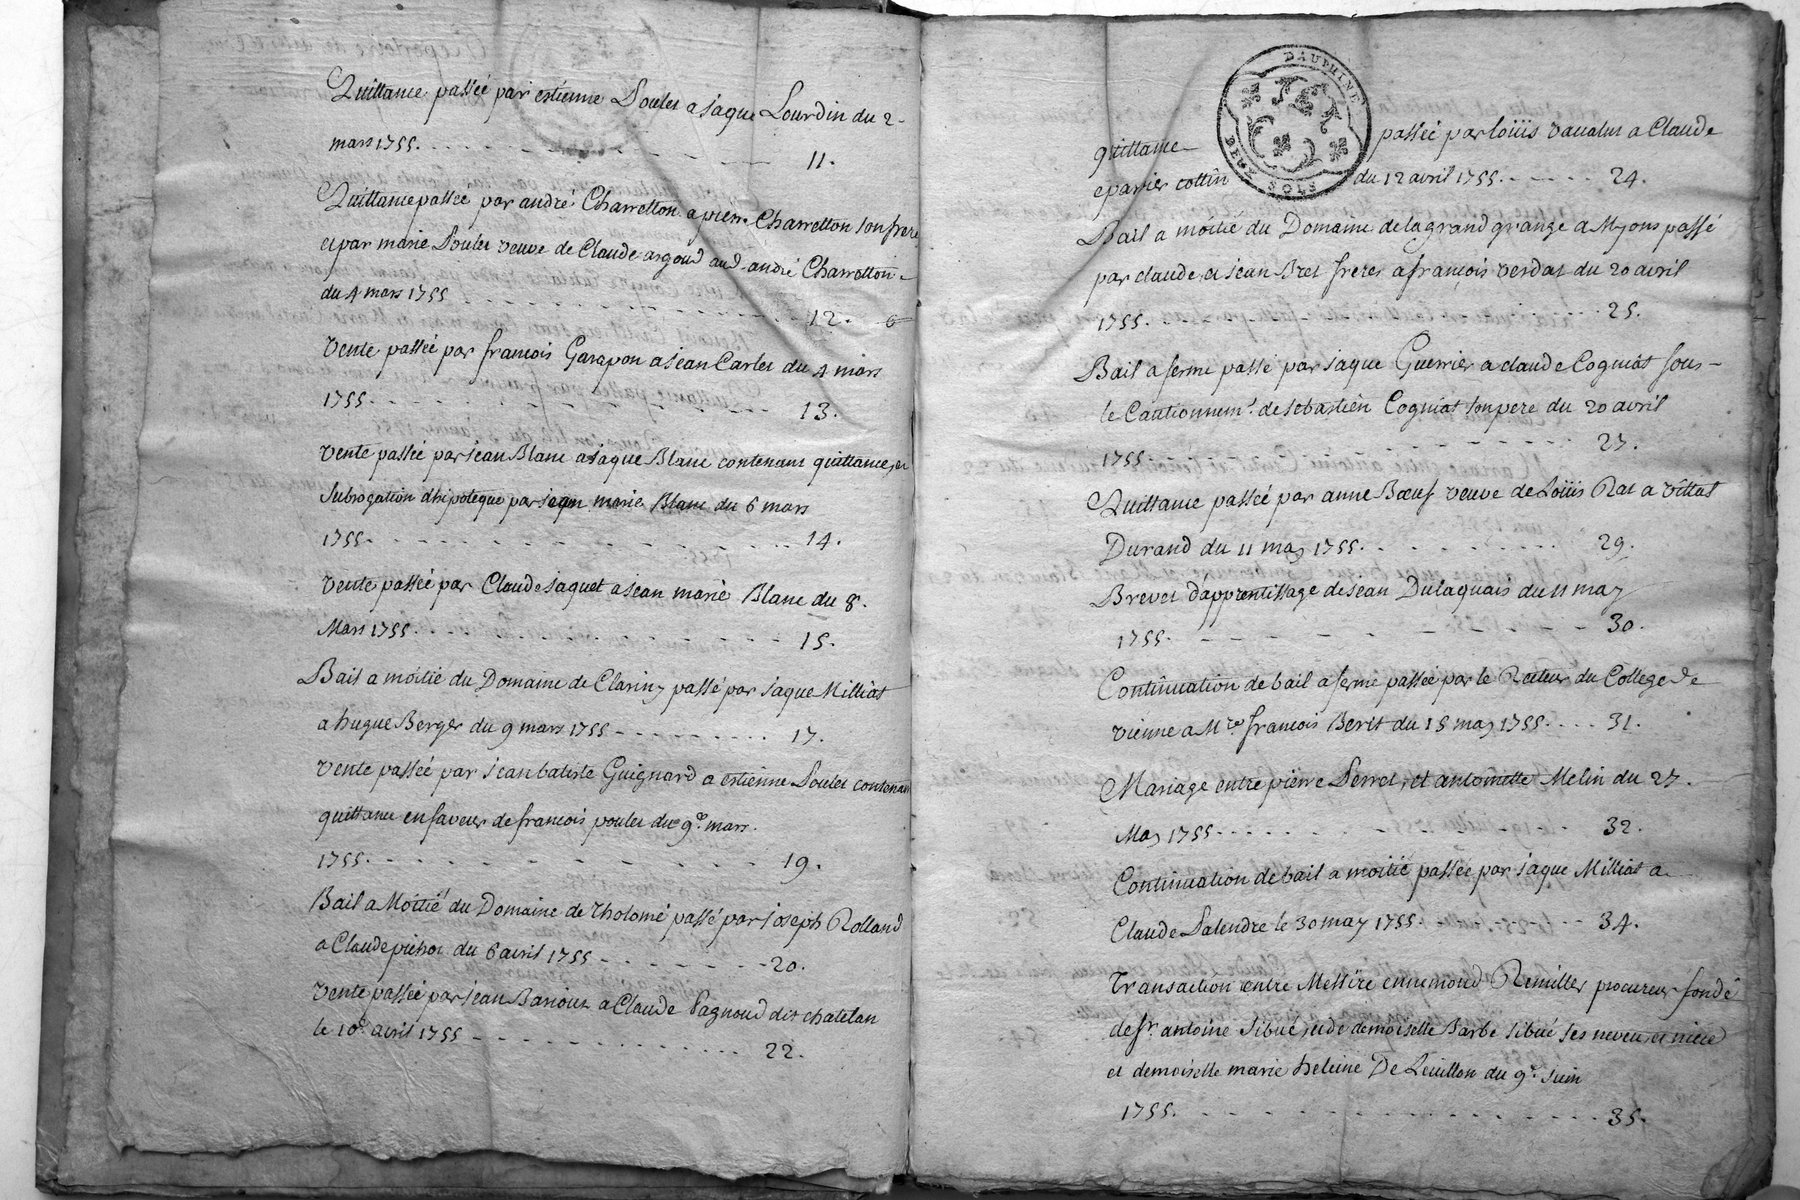 Quittance passée par estienne Poulet a jaque Lourdin du 2
mars 1755. 11.
Quittance passée par andré Charretton a pierre Charretton son frere
et par marie Poulet veuve de Claude argoud aud. andré Charretton
du 4 mars 1755 12.
Vente passée par françois Garapon a jean Carlet du 4 mars
1755. 13.
Vente passée par jean Blanc a jaque Blanc contenant quittance, et
subrogation d'hipoteque par jean marie Blanc du 6 mars
1755. 14.
Vente passée par Claude jaquet a jean marie Blanc du 8.
Mars 1755. 15.
Bail a moitié du Domaine de Clariny passé par jaque Milliat
a hugue Berger du 9 mars 1755 17.
Vente passée par jean batiste Guignard a estienne Poulet contenant
quittance en faveur de francois poulet du 9e. mars.
1755. 19.
Bail a Moitié du Domaine de Tholomé passé par joseph Rolland
a Claude pichot du 6 avril 1755 20.
Vente passée par jean Barioux a Claude Pagnoud dit chatelan
le 10e. avril 1755 22.
DAUPHINE
DEUX SOLS
quittance passée par loüis vaualet a Claude
eparvier cottin du 12 avril 1755. 24.
Bail a moitié du Domaine de la grand grange a Myons passé
par claude et jean Bret freres a françois verdat du 20 avril
1755. 25.
Bail a ferme passé par jaque Guerrier a claude Cogniat sous
le Cautionnemt. de sebastien Cogniat son pere du 20 avril
1755 27.
Quittance passée par anne Bœuf veuve de Loüis Rat a vittal
Durand du 11 may 1755. 29.
Brevet d'apprentissage de jean Dulaquais du 11 may
1755. 30.
Continuation de bail a ferme passée par le Recteur du College de
vienne a Mre francois Berit du 15 may 1755. 31.
Mariage entre pierre Perret, et antoinette Melin du 27.
May 1755 32.
Continuation de bail a moitié passée par jaque Milliat a
Claude Lalendre le 30 may 1755. 34.
Transaction entre Messire ennemond Remiller procureur fondé
de sr. antoine sibué, et de demoiselle Barbe sibué ses neveu et niece
et demoiselle marie heleine De Leuillon du 9e. juin
1755. 35.